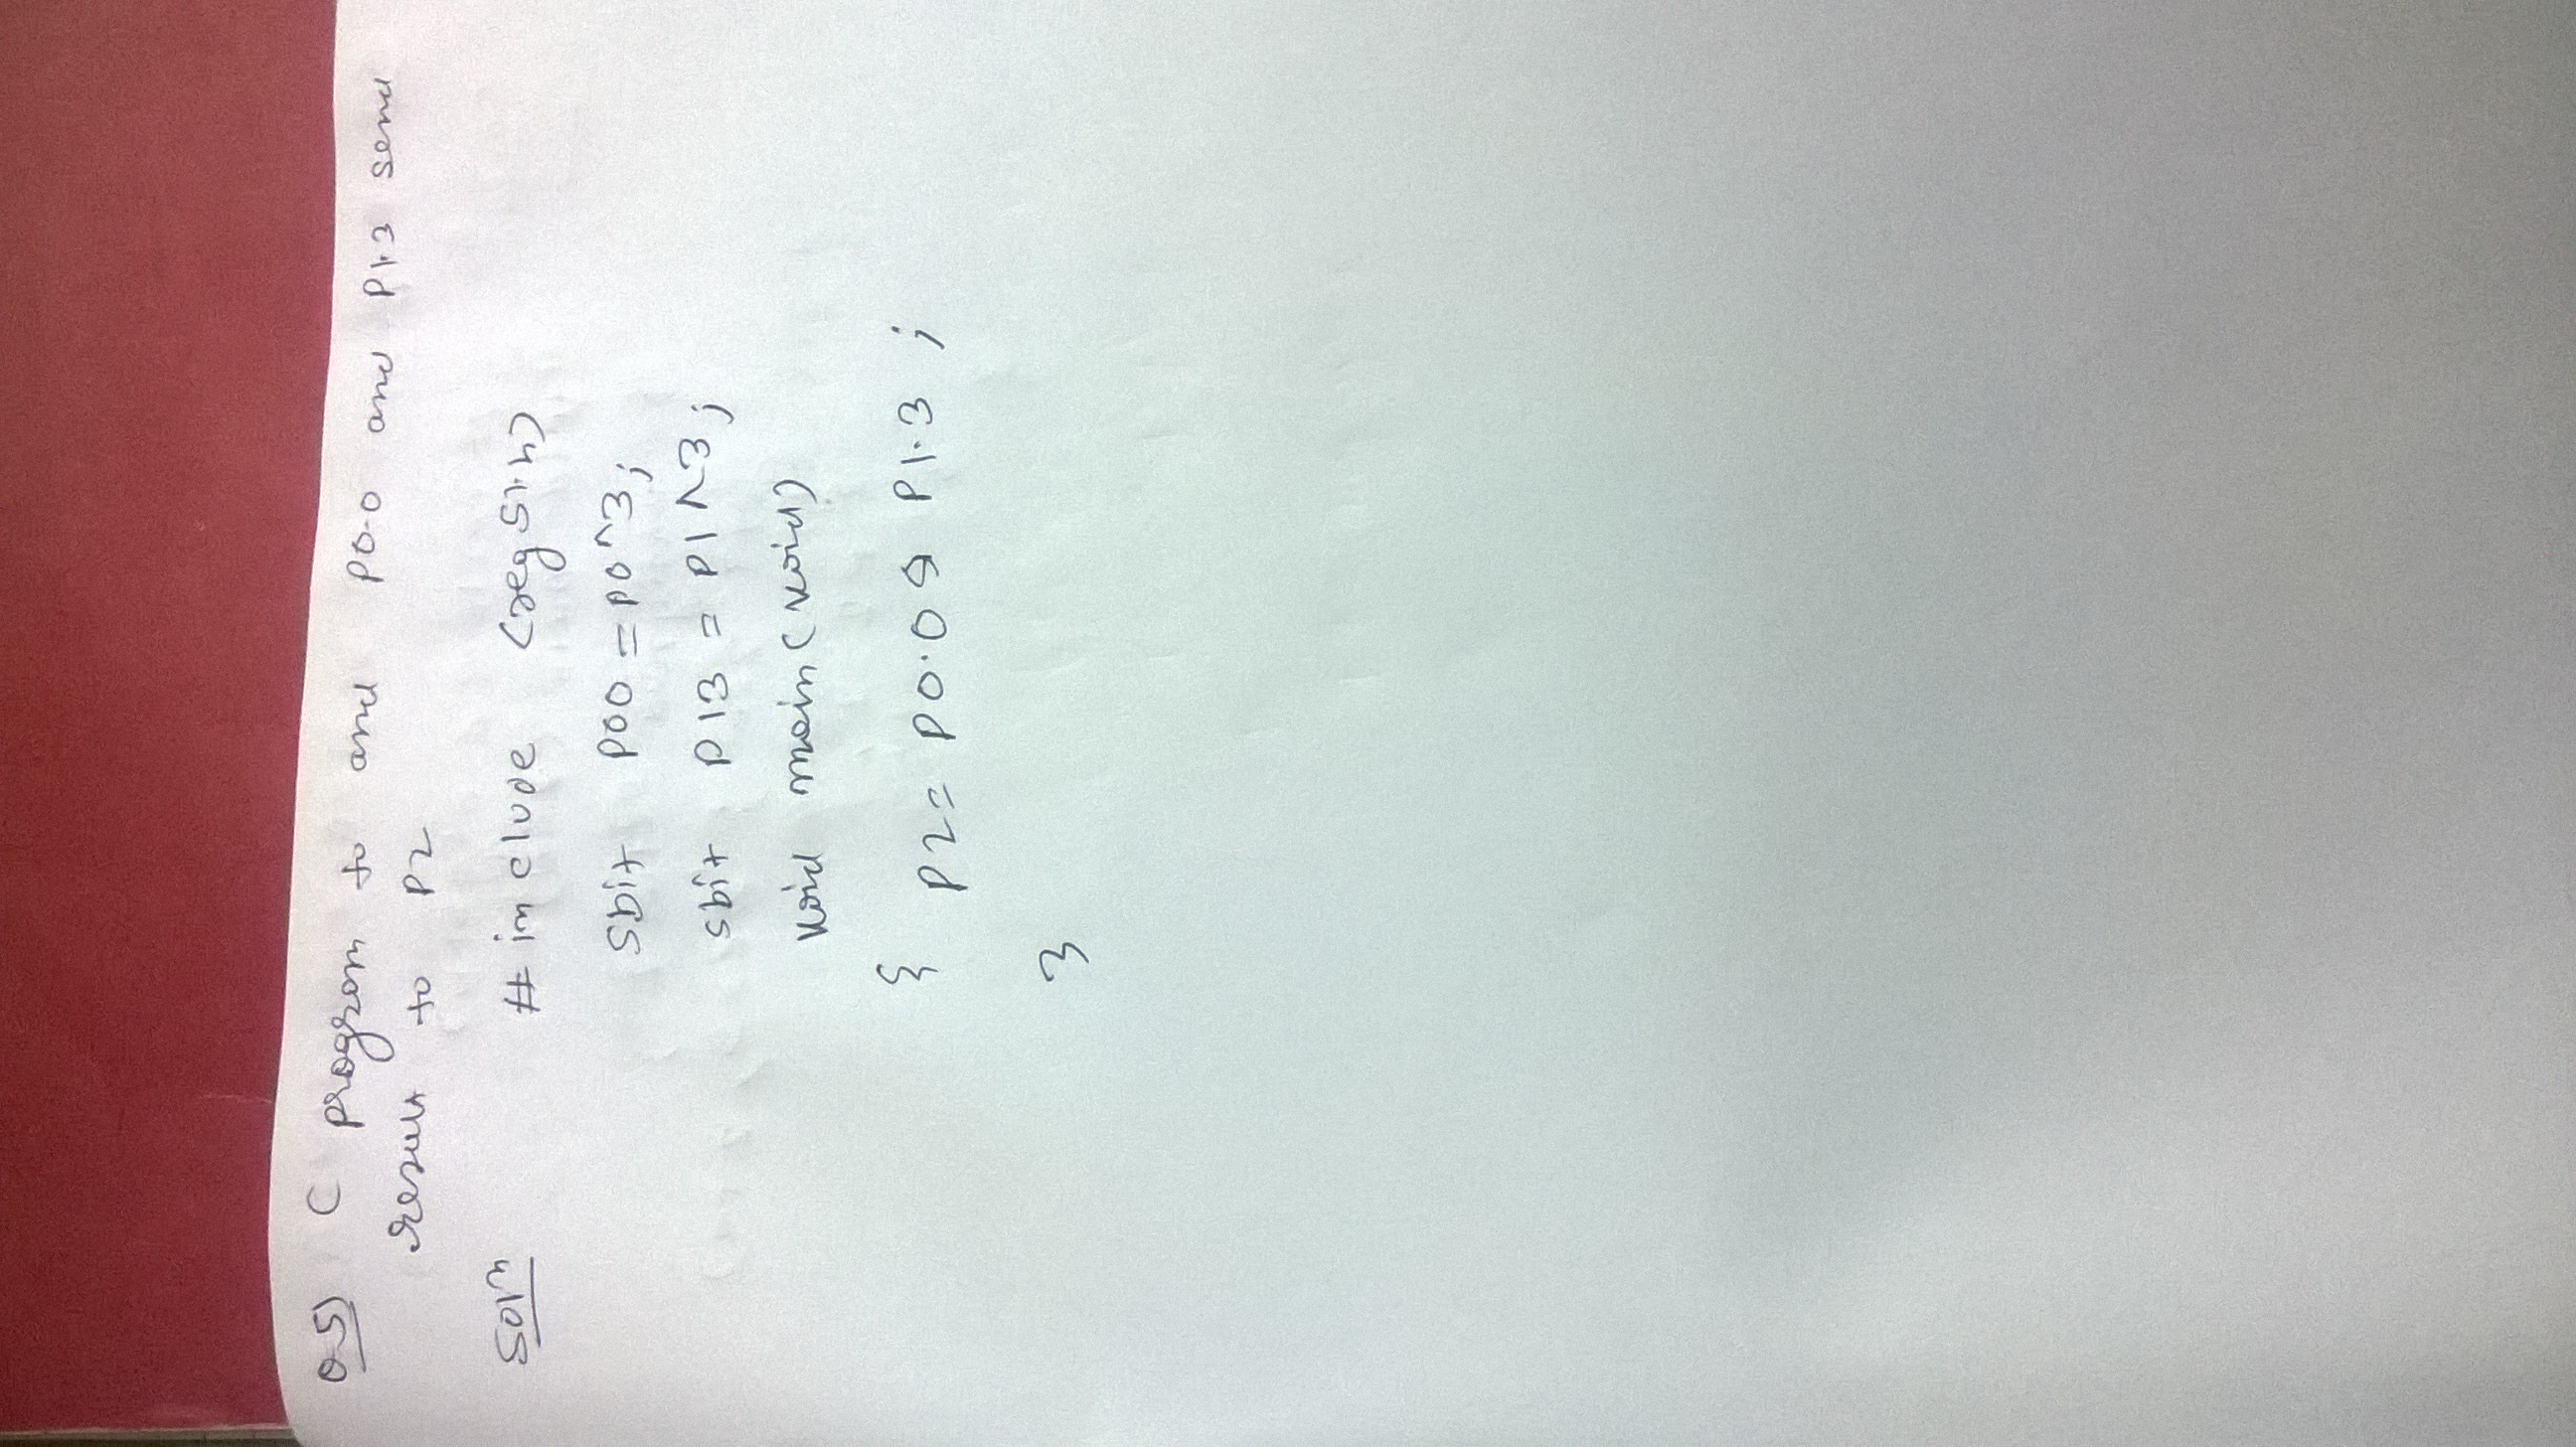 Q-5) C program to and P0.0 and P1.3 send
result to P2
Soln # include (reg51.h)
sbit P00 = P0^3;
sbit P13 = P1^3;
void main(void)
{ P2 = P0.0 & P1.3 ;
}